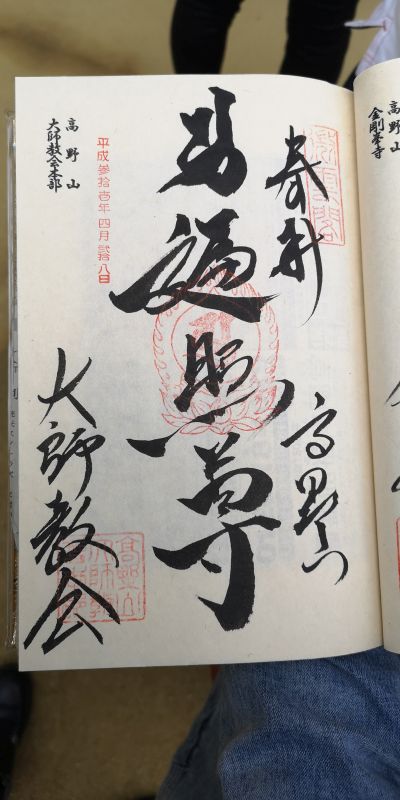 高野山
金剛峯寺
奉拝
高野山
遍照尊
平成参拾壱年四月弐拾八日
高野山
大師教会本部
大師教会